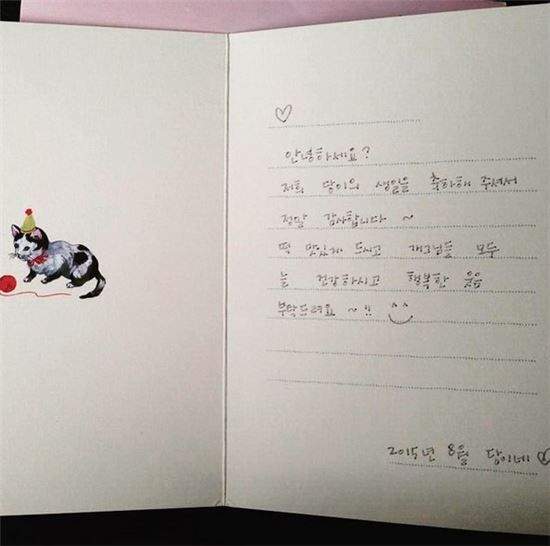 ♡
안녕하세요?
저희 담이의 생일을 축하해 주셔서
정말 감사합니다 ~
떡 맛있게 드시고 개그님들 모두
늘 건강하시고 행복한 웃음
부탁드려요 ~!! ^^
2015년 8월 담이네